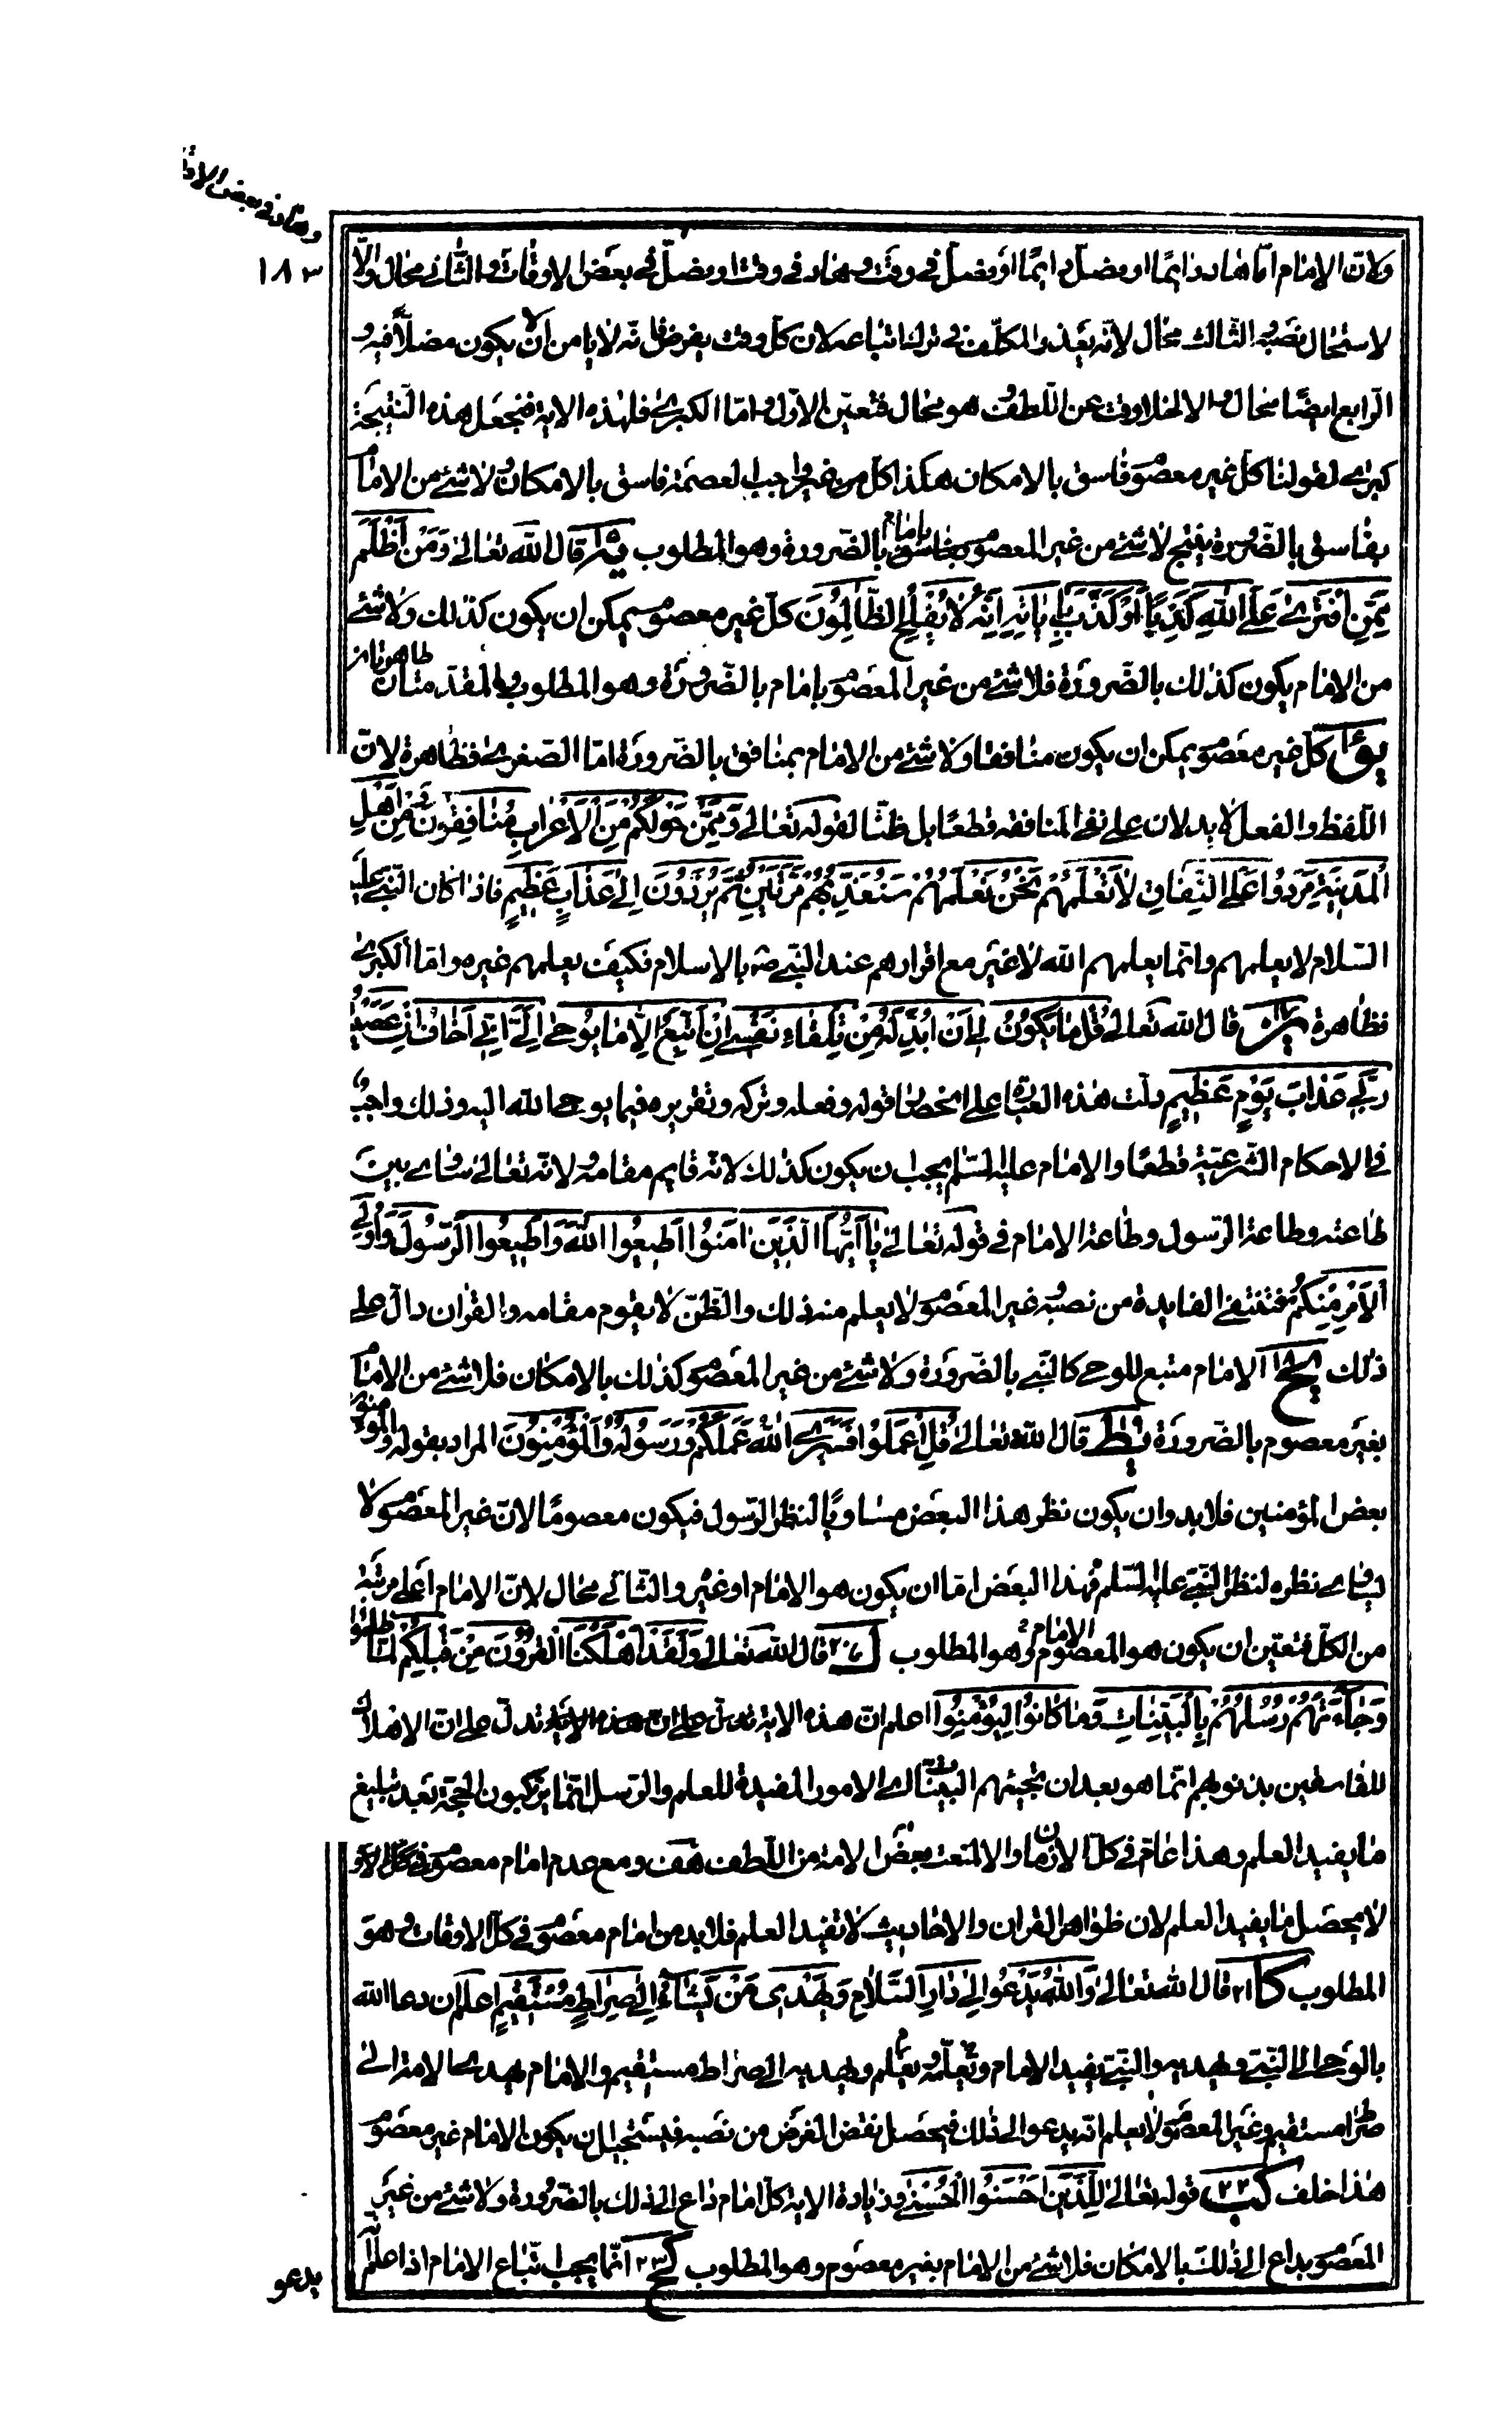 وهاد في بعض الاوقا
١٨٣
ولان الامام اما هاد دايمًا او يضل دايمًا او يضل في وقت ويهاد في وقت او يضل في بعض الاوقات والثاني محال والّا
لاستحال نصبه والثالث محال لانه يعذر المكلف في ترك اتباعه لان كل وقت يفرض فانه لا يامن ان يكون مضلاً فيه و
الرابع ايضًا محال والا لخلا وقت عن اللطف وهو محال فتعين الاول واما الكبرى فلهذه الاية فنجعل هذه النتيجة
كبرى لقولنا كل غير معصوم فاسق بالامكان هكذا كل من غير واجب العصمة فاسق بالامكان ولا شئ من الامام
بفاسق بالضرورة ينتج لا شئ من غير المعصوم بامام بالضرورة وهو المطلوب يه ١٥ قال الله تعالى وَمَنْ أَظْلَمُ
مِمَّنِ افْتَرى عَلَى اللهِ كَذِبًا أَوْ كَذَّبَ بِآيَاتِهِ اِنَّهُ لَا يُفْلِحُ الظَّالِمُونَ كل غير معصوم يمكن ان يكون كذلك ولا شئ
من الامام يكون كذلك بالضرورة فلا شئ من غير المعصوم بامام بالضرورة وهو المطلوب والمقدمتان ظاهرتان
يو ١٦ كل غير معصوم يمكن ان يكون منافقا ولا شئ من الامام بمنافق بالضرورة اما الصغرى فظاهرة لان
اللفظ والفعل لا يدلان على نفي المنافقه قطعًا بل ظنًّا لقوله تعالى وَمِمَّنْ حَوْلَكُمْ مِنَ الْأَعْرَابِ مُنَافِقُونَ وَمِنْ اَهْلِ
الْمَدِينَةِ مَرَدُوا عَلَى النِّفَاقِ لَا تَعْلَمُهُمْ نَحْنُ نَعْلَمُهُمْ سَنُعَذِّبُهُمْ مَرَّتَيْنِ ثُمَّ يُرَدُّونَ اِلى عَذَابٍ عَظِيمٍ فاذا كان النبي عليه
السلام لا يعلمهم وانما يعلمهم الله لا غير مع اقرارهم عند النبي ص بالاسلام فكيف يعلمهم غيره واما الكبرى
فظاهرة يز ١٧ قال الله تعالى قُلْ مَا يَكُونُ لِي اَنْ اُبَدِّلَهُ مِنْ تِلْقَاءِ نَفْسِي اِنْ اَتَّبِعُ اِلَّا مَا يُوحى اِلَيَّ اِنِّي اَخَافُ اِنْ عَصَيْتُ
رَبِّي عَذَابَ يَوْمٍ عَظِيمٍ دلت هذه العبارة على انحصار قوله وفعله وتركه وتقريره فيما يوحى الله اليه وذلك واجب
في الاحكام الشرعية قطعًا والامام عليه السلام يجب ان يكون كذلك لانه قايم مقامه ولانه تعالى ساوى بين
طاعته وطاعة الرسول وطاعة الامام في قوله تعالى يَا اَيُّهَا الَّذِينَ امَنُوا اَطِيعُوا اللهَ وَاَطِيعُوا الرَّسُولَ وَاُولِي
الْاَمْرِ مِنْكُمْ فتنتفي الفايدة من نصبه غير المعصوم لا يعلم منه ذلك والظن لا يقوم مقامه والقران دال على
ذلك يح ١٨ الامام متبع للوحي كالنبي بالضرورة ولا شئ من غير المعصوم كذلك بالامكان فلا شئ من الامام
بغير معصوم بالضرورة يط ١٩ قال الله تعالى قُلِ اعْمَلُوا فَسَيَرَى اللهُ عَمَلَكُمْ وَرَسُولُهُ وَالْمُؤْمِنُونَ المراد بقوله والمؤمنون
بعض المؤمنين فلا بد وان يكون نظر هذا البعض مساويًا لنظر الرسول فيكون معصومًا لان غير المعصوم لا
يساوى نظره لنظر النبي عليه السلم فهذا البعض اما ان يكون هو الامام او غيره والثاني محال لان الامام اعلى مرتبة
من الكل فتعين ان يكون هو المعصوم الامام وهو المطلوب ك ٢٠ قال الله تعالى وَلَقَدْ اَهْلَكْنَا الْقُرُونَ مِنْ قَبْلِكُمْ لَمَّا ظَلَمُوا
وَجَاءَتْهُمْ رُسُلُهُمْ بِالْبَيِّنَاتِ وَمَا كَانُوا لِيُؤْمِنُوا اعلم ان هذه الاية تدل على ان هذه الاية تدل على ان الاهلاك
للفاسقين بذنوبهم انما هو بعد ان تجيئهم البينات اى الامور المفيدة للعلم والرسل انما يركبون الحجة بعد تبليغ
ما يفيد العلم وهذا عام في كل الازمان والا لمنعت بعض الامة من اللطف هف ومع عدم امام معصوم في كل الاوقا
لا يحصل ما يفيد العلم لان ظواهر القران والاحاديث لا تفيد العلم فلا بد من امام معصوم في كل الاوقات وهو
المطلوب كا ٢١ قال الله تعالى وَاللهُ يَدْعُو اِلى دَارِ السَّلَامِ وَيَهْدِي مَنْ يَشَاءُ اِلى صِرَاطٍ مُسْتَقِيمٍ اعلم ان دعا الله
بالوحي الى النبي ويهديه والنبي يفيد الامام ويعلمه ويهديه الى صراط مستقيم والامام يهدى الامة الى
صراط مستقيم وغير المعصوم لا يعلم انه يدعو الى ذلك فيحصل نقض الغرض من نصبه فيستحيل ان يكون الامام غير معصوم
هذا خلف كب ٢٢ قوله تعالى لِلَّذِينَ اَحْسَنُوا الْحُسْنى وزيادة الاية كل امام داع الى ذلك بالضرورة ولا شئ من غير
المعصوم بداع الى ذلك بالامكان فلا شئ من الامام بغير معصوم وهو المطلوب كج ٢٣ انما يجب اتباع الامام اذا علم انه
يدعو